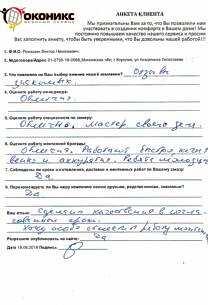 ОКОНИКС
АНКЕТА КЛИЕНТА
Мы признательны Вам за то, что Вы позволили нам
участвовать в создании комфорта в Вашем доме! Мы
постоянно повышаем качество нашего сервиса и просим
Вас заполнить анкету, чтобы быть уверенными, что Вы довольны нашей работой!!!
1. Ф.И.О.
2. №договора/Адрес
3. Что повлияло на Ваш выбор именно нашей компании? Отзывы
знакомых.
4. Оценить работу менеджера:
Отлично.
5. Оценить работу замерщика:
Отлично, мастер своего дела.
6. Оценить работу монтажной бригады:
Отлично. Работают быстро, качест
венно и аккуратно. Ребята молодцы
7. Соблюдены ли сроки изготовления, доставки и монтажных работ по Вашему заказу:
Да
8. Порекомендуете ли Вы нашу компанию своим друзьям, родственникам, знакомым?
Да
Ваш отзыв: Сделали качественно в согла-
сованный срок.
Хочу особо отметить работу
Разрешаю опубликовать на сайте: Да
Дата 19.09.2018 Подпись